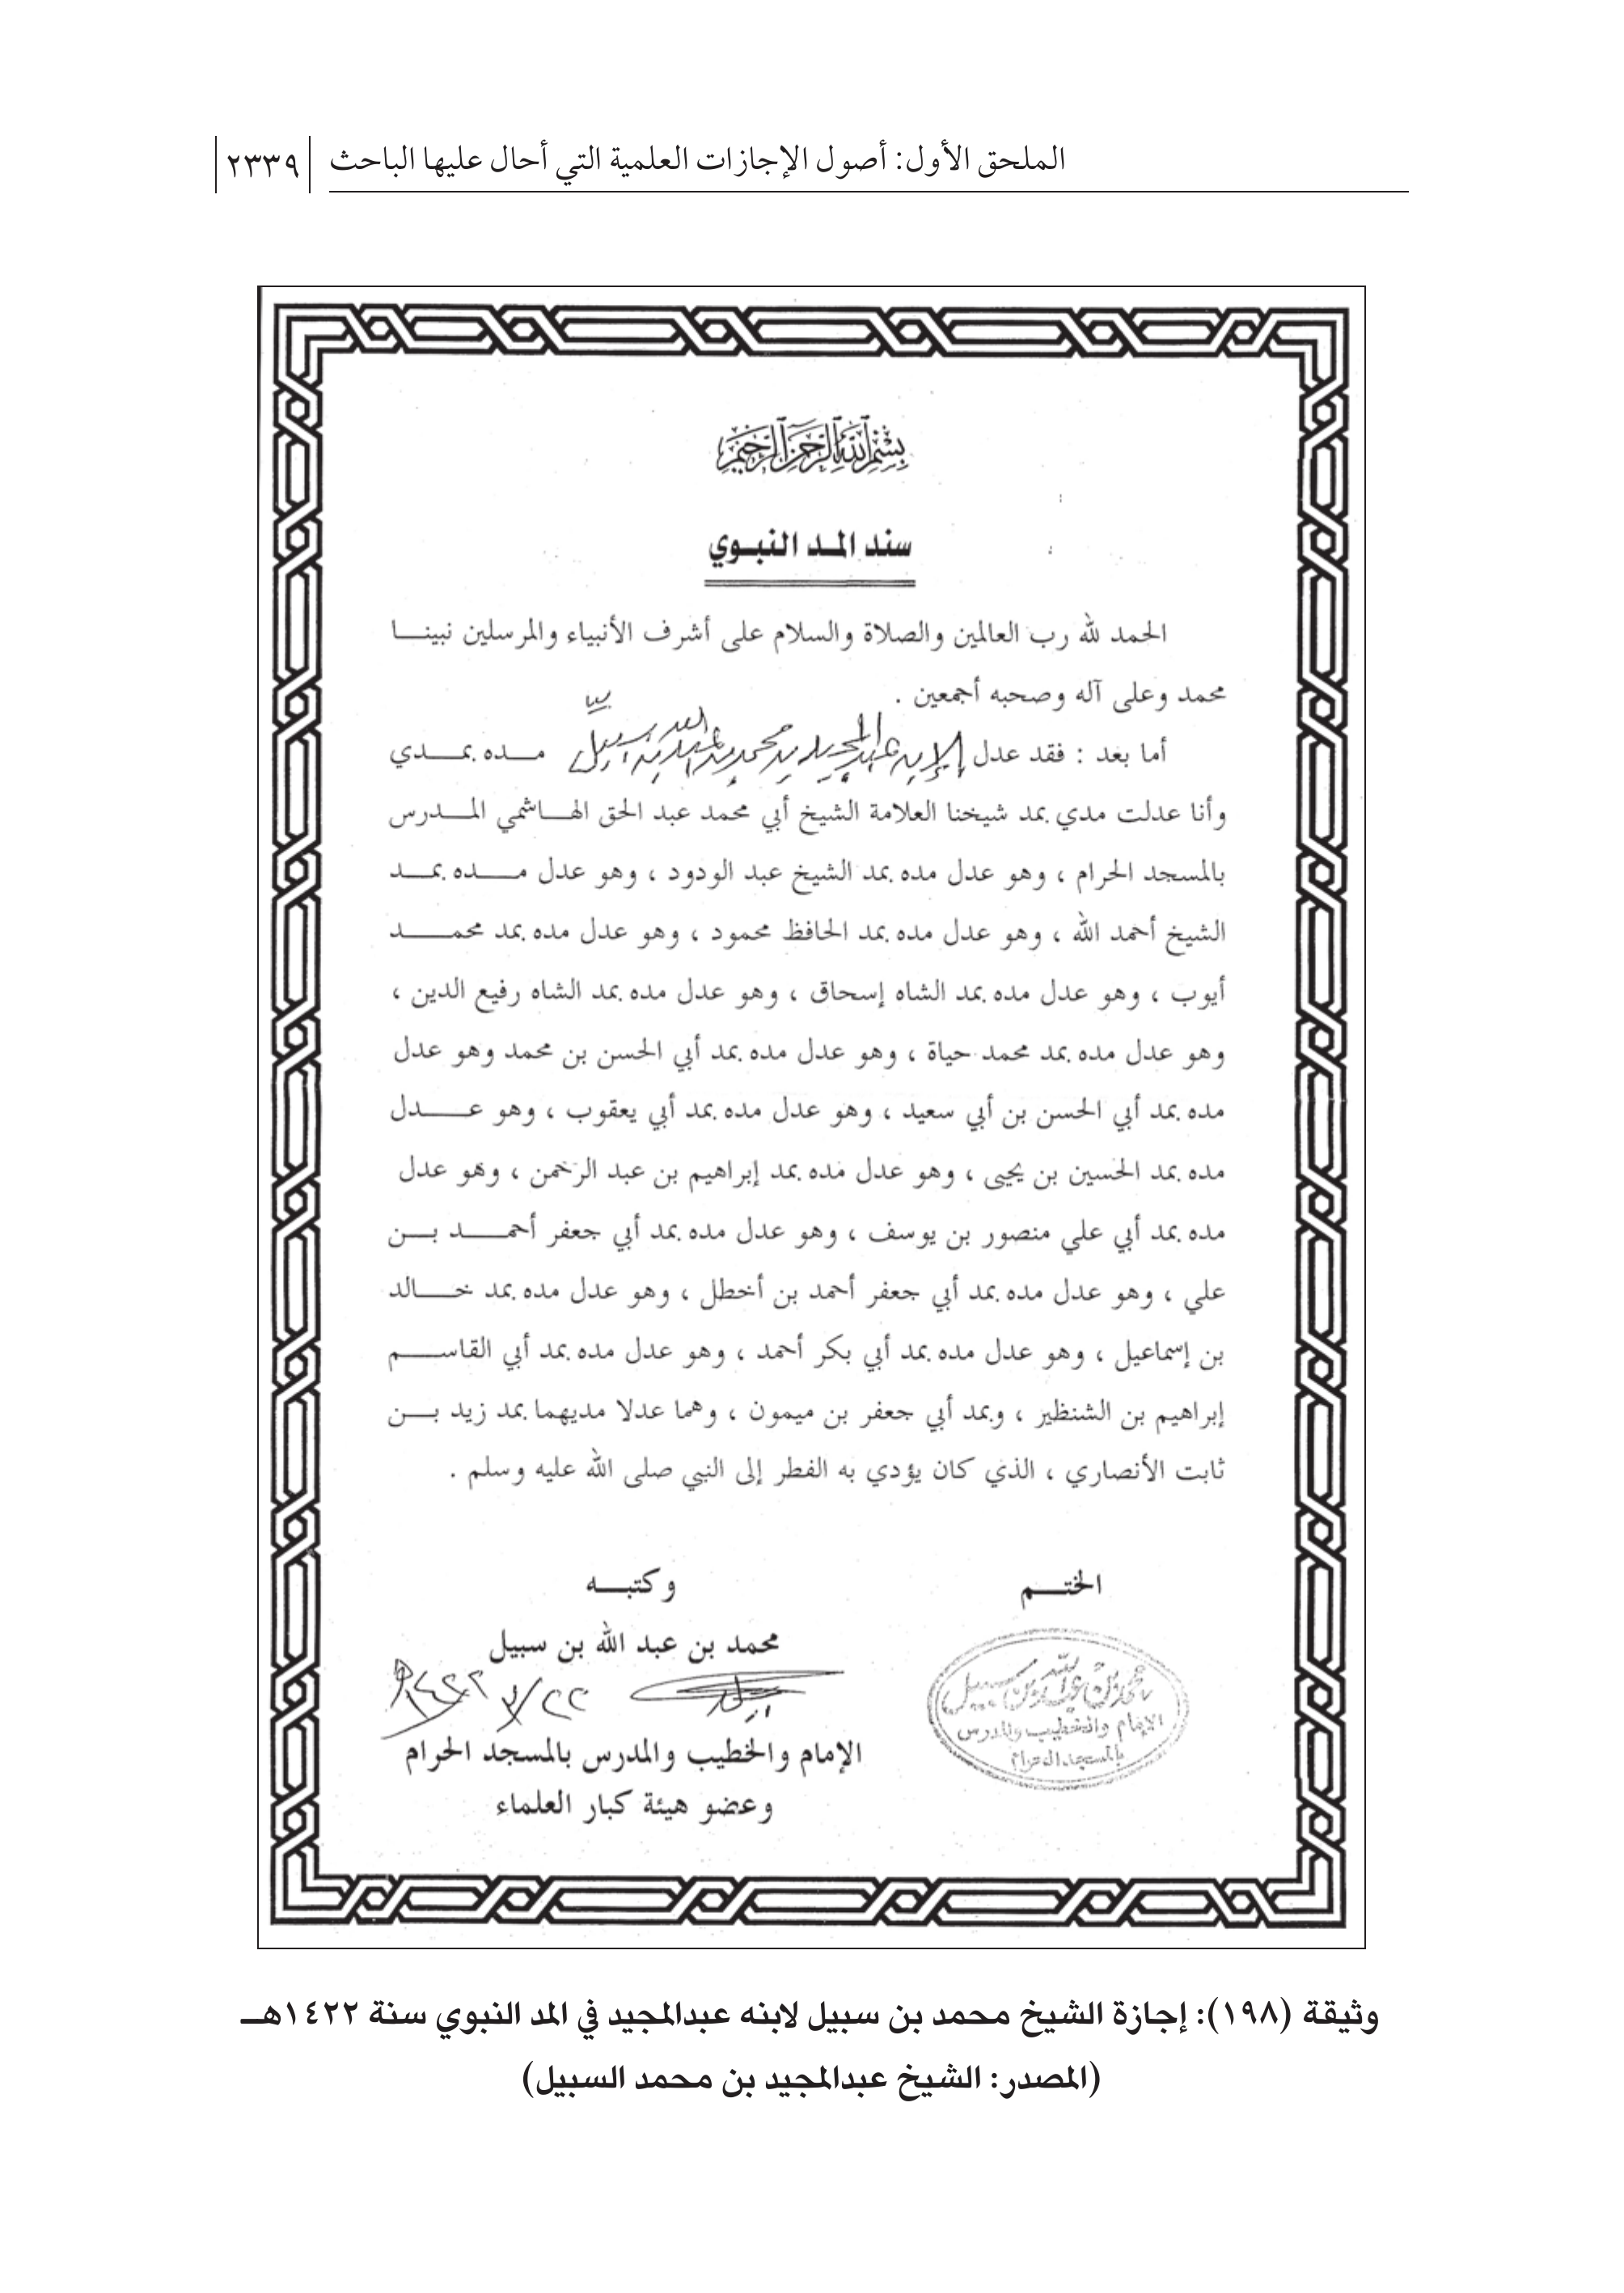 الملحق الأول: أصول الإجازات العلمية التي أحال عليها الباحث ٢٣٣٩
بسم الله الرحمن الرحيم
سند المد النبوي
الحمد لله رب العالمين والصلاة والسلام على أشرف الأنبياء والمرسلين نبينا
محمد وعلى آله وصحبه أجمعين .
أما بعد : فقد عدل الابن عبد المجيد بن محمد بن عبد الله بن سبيل مده بمدي
وأنا عدلت مدي بمد شيخنا العلامة الشيخ أبي محمد عبد الحق الهاشمي المدرس
بالمسجد الحرام ، وهو عدل مده بمد الشيخ عبد الودود ، وهو عدل مده بمد
الشيخ أحمد الله ، وهو عدل مده بمد الحافظ محمود ، وهو عدل مده بمد محمد
أيوب ، وهو عدل مده بمد الشاه إسحاق ، وهو عدل مده بمد الشاه رفيع الدين ،
وهو عدل مده بمد محمد حياة ، وهو عدل مده بمد أبي الحسن بن محمد وهو عدل
مده بمد أبي الحسن بن أبي سعيد ، وهو عدل مده بمد أبي يعقوب ، وهو عدل
مده بمد الحسين بن يحيى ، وهو عدل مده بمد إبراهيم بن عبد الرحمن ، وهو عدل
مده بمد أبي علي منصور بن يوسف ، وهو عدل مده بمد أبي جعفر أحمد بن
علي ، وهو عدل مده بمد أبي جعفر أحمد بن أخطل ، وهو عدل مده بمد خالد
بن إسماعيل ، وهو عدل مده بمد أبي بكر أحمد ، وهو عدل مده بمد أبي القاسم
إبراهيم بن الشنظير ، وبمد أبي جعفر بن ميمون ، وهما عدلا مديهما بمد زيد بن
ثابت الأنصاري ، الذي كان يؤدي به الفطر إلى النبي صلى الله عليه وسلم .
الختم
محمد بن عبد الله بن سبيل
الإمام والخطيب والمدرس
بالمسجد الحرام
وكتبه
محمد بن عبد الله بن سبيل
٢٢/٣/١٤٢٢هـ
الإمام والخطيب والمدرس بالمسجد الحرام
وعضو هيئة كبار العلماء
وثيقة (١٩٨): إجازة الشيخ محمد بن سبيل لابنه عبدالمجيد في المد النبوي سنة ١٤٢٢هـ
(المصدر: الشيخ عبدالمجيد بن محمد السبيل)